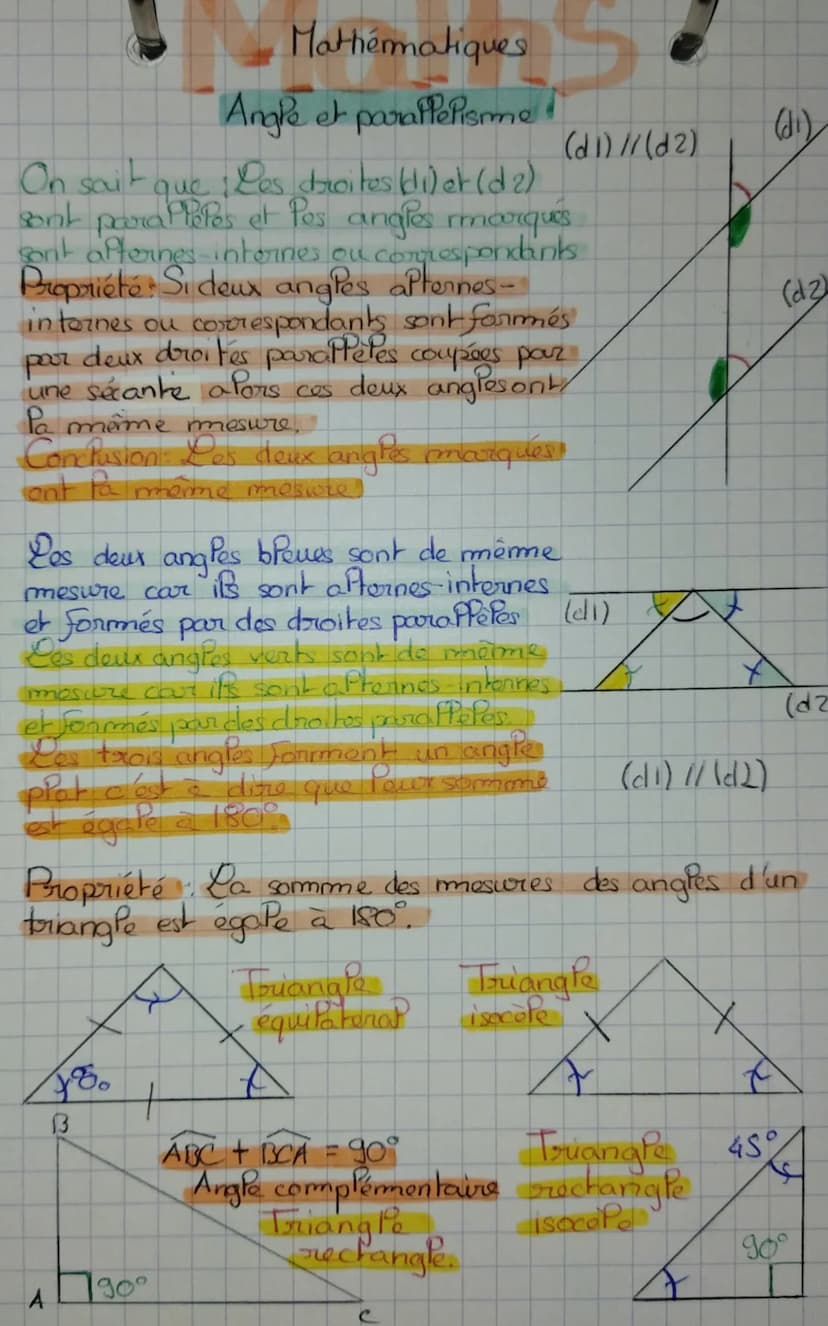 Maths
Mathématiques
Angle et parallélisme
(d1) // (d2)
(d1)
(d2)
On sait que : Les droites (d1) et (d2)
sont parallèles et les angles marqués
sont alternes-internes ou correspondants
Propriété : Si deux angles alternes-
internes ou correspondants sont formés
par deux droites parallèles coupées par
une sécante alors ces deux angles ont
la même mesure.
Conclusion : Les deux angles marqués
ont la même mesure
Les deux angles bleues sont de même
mesure car ils sont alternes-internes
et formés par des droites parallèles
Les deux angles verts sont de même
mesure car ils sont alternes-internes
et formés par des droites parallèles.
Les trois angles forment un angle
plat c'est à dire que leur somme
est égale à 180°.
(d1)
(d2
(d1) // (d2)
Propriété : La somme des mesures des angles d'un
triangle est égale à 180°.
Triangle
équilateral
Triangle
isocèle
B
A
C
90°
ABC + BCA = 90°
Angle complémentaire
Triangle
rectangle.
Triangle
rectangle
isocèle
45°
90°